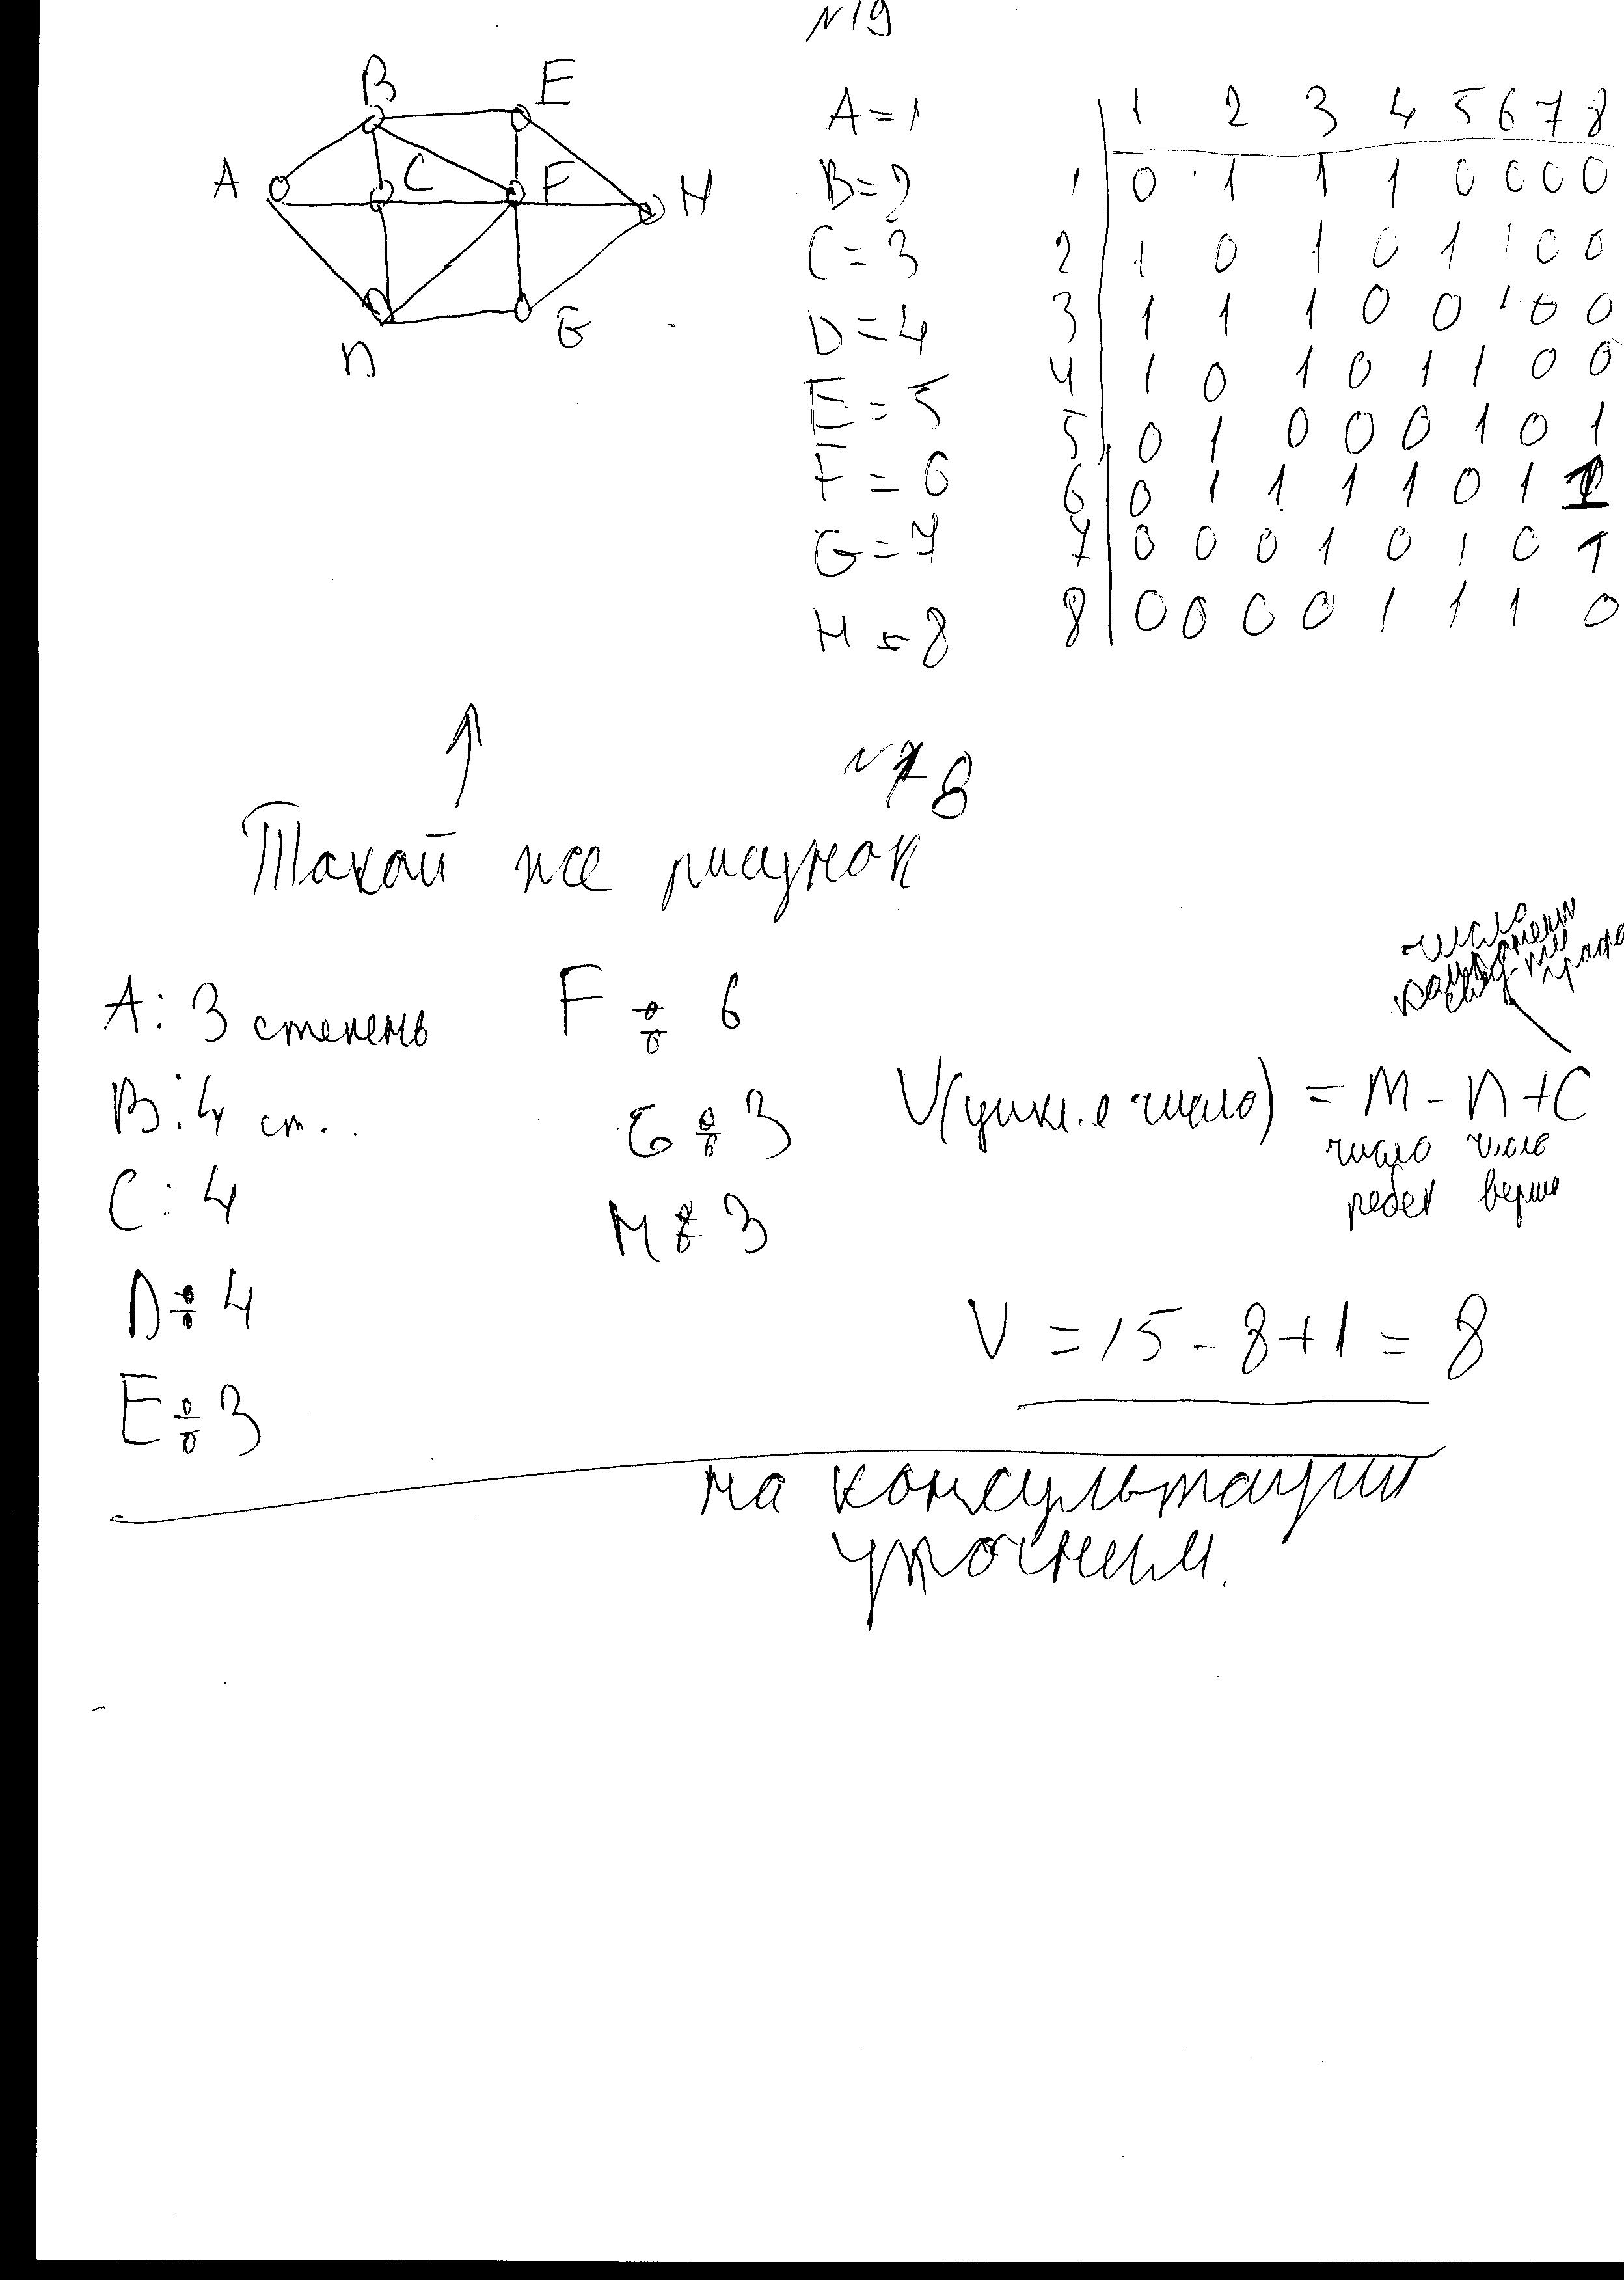 N19
B E
A C F H
D G
A = 1
B = 2
C = 3
D = 4
E = 5
F = 6
G = 7
H = 8
1 2 3 4 5 6 7 8
1 0 1 1 1 0 0 0 0
2 1 0 1 0 1 1 0 0
3 1 1 1 0 0 1 0 0
4 1 0 1 0 1 1 0 0
5 0 1 0 0 0 1 0 1
6 0 1 1 1 1 0 1 1
7 0 0 0 1 0 1 0 1
8 0 0 0 0 1 1 1 0
N 8
Такой же рисунок
A: 3 степень
B: 4 ст.
C: 4
D: 4
E: 3
F: 6
G: 3
H: 3
число
графа
V(цикл.е число) = M - n + C
число число
ребер верш
V = 15 - 8 + 1 = 8
на консультации
уточним.